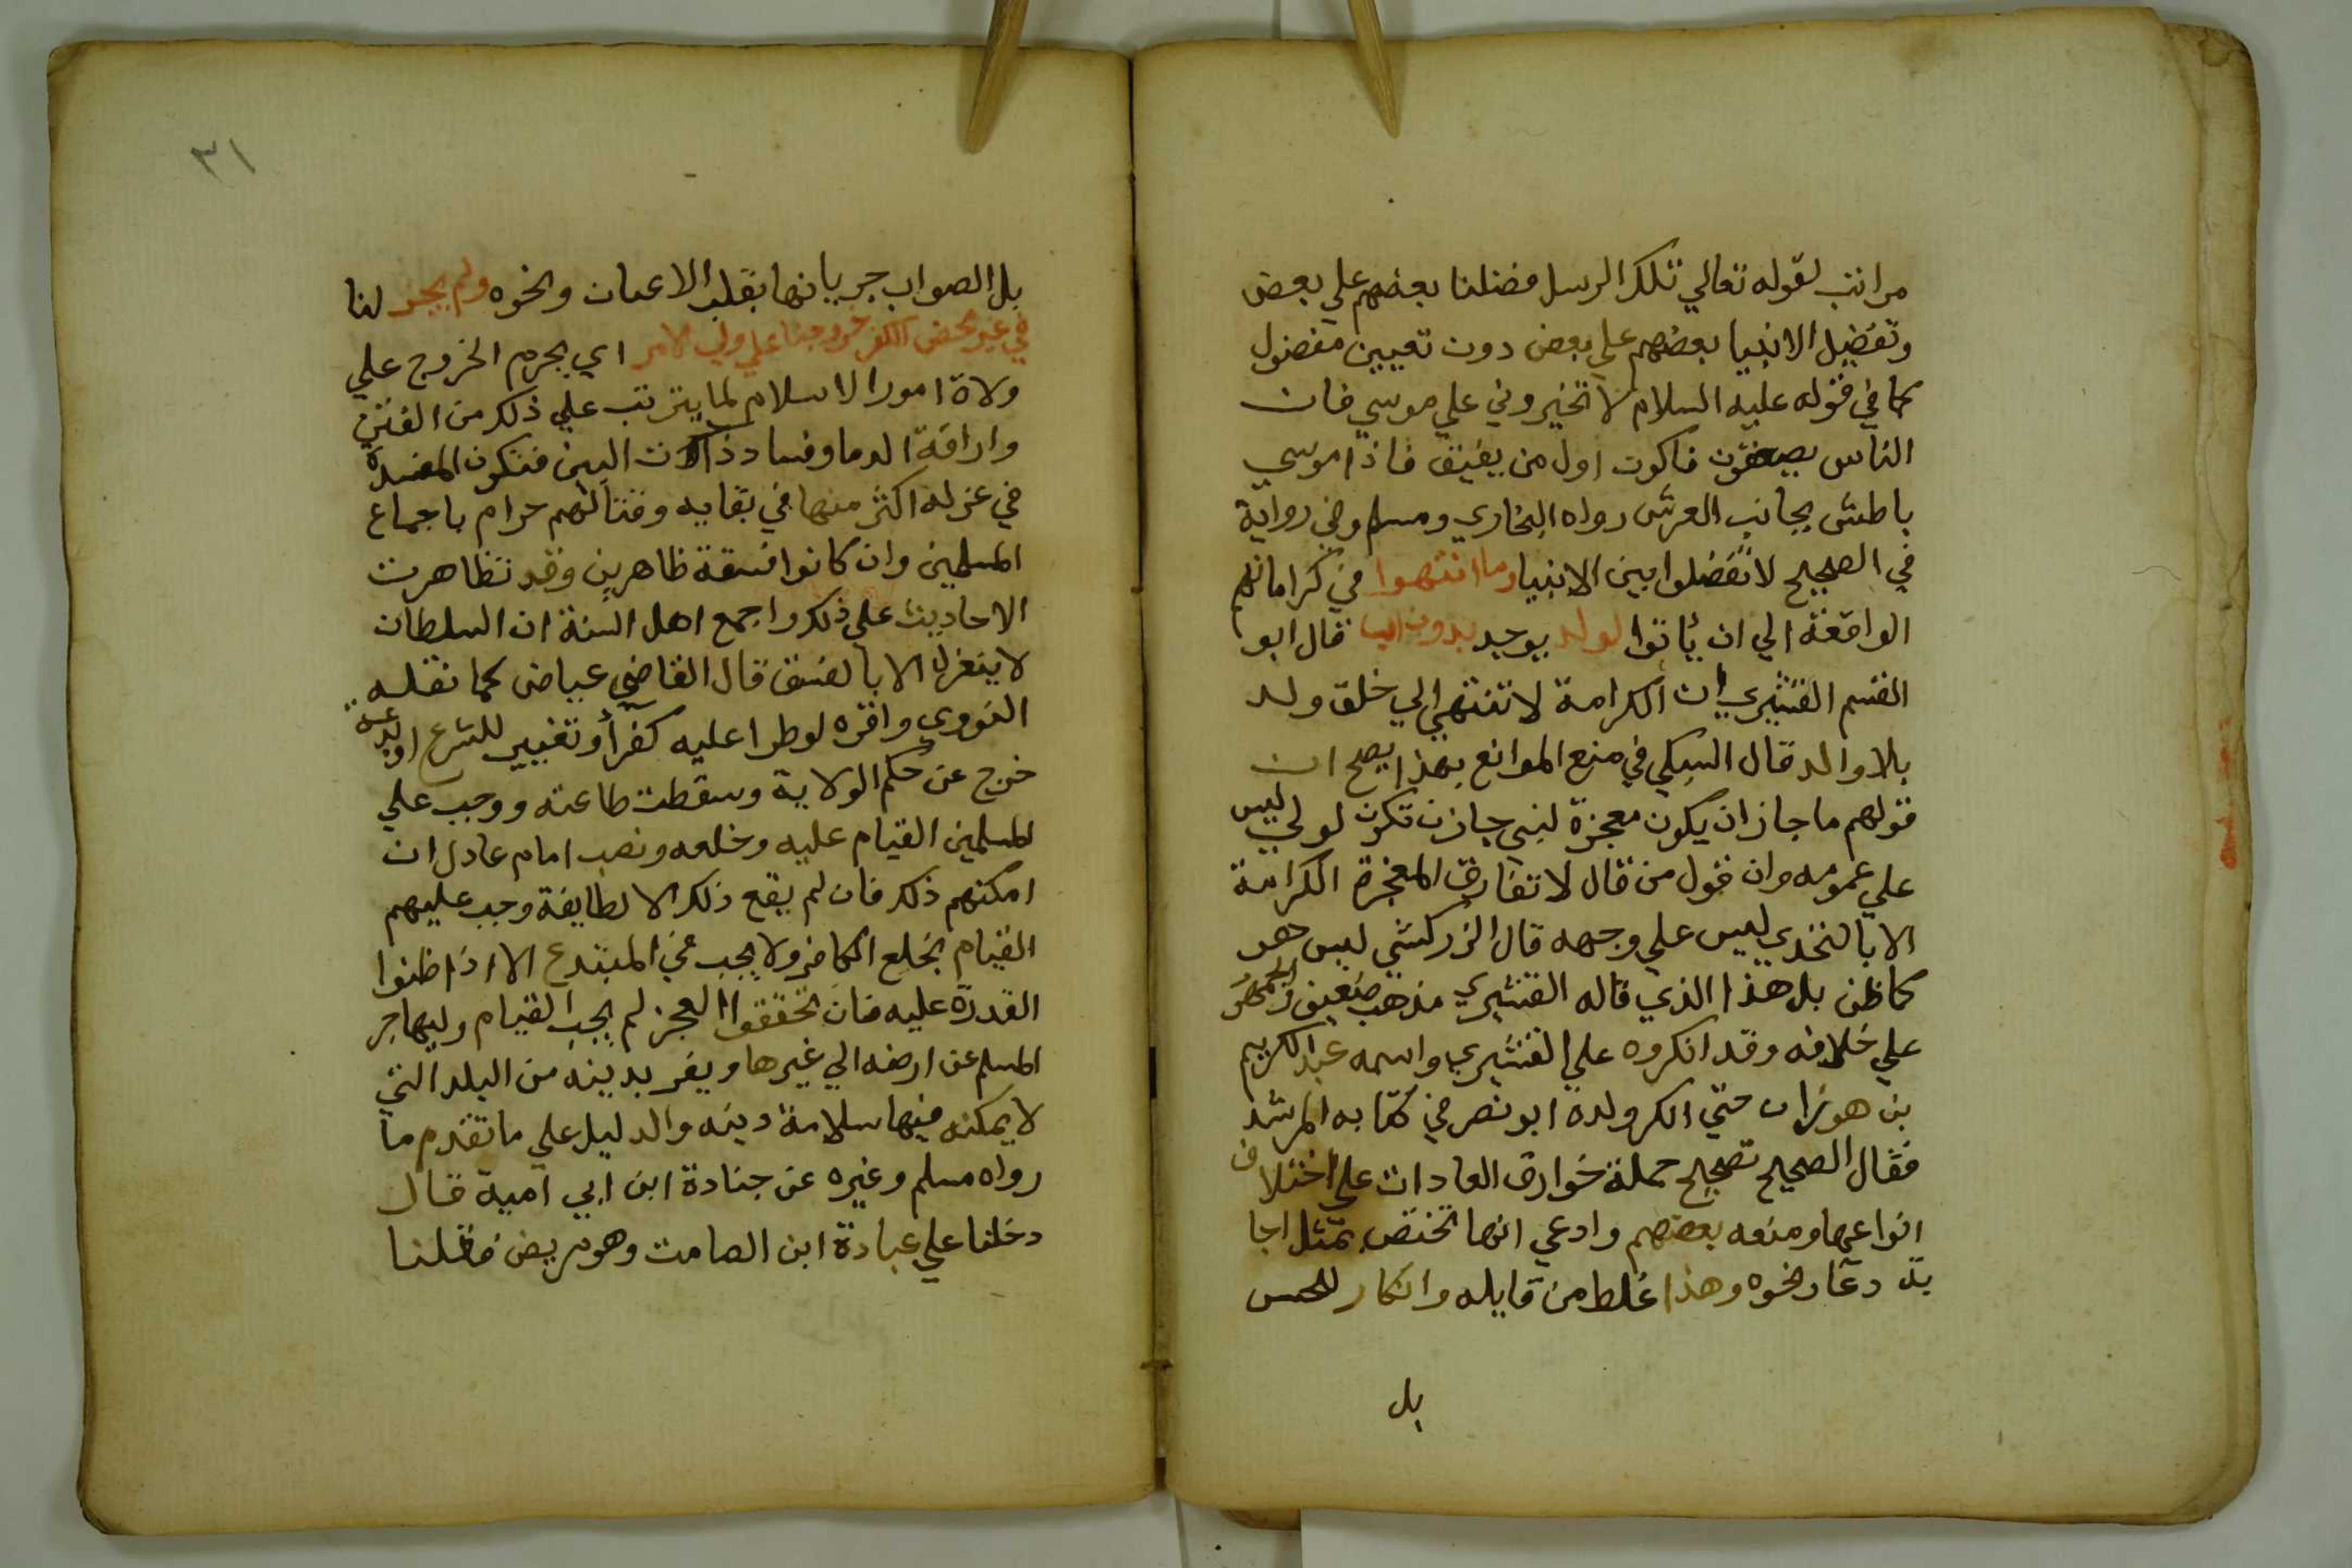 مراتب لقوله تعالي تلك الرسل فضلنا بعضهم علي بعض
وتفضيل الانبيا بعضهم علي بعض دون تعيين مفضول
كما في قوله عليه السلام لا تخيروني علي موسي فان
الناس يصعقون فاكون اول من يفيق فاذا موسي
باطش بجانب العرش رواه البخاري ومسلم وفي رواية
في الصحيح لا تفضلوا بين الانبيا وما انتهوا في كراماتهم
الواقعة الي ان يأتوا لولد يوجد بدون اب قال ابو
القسم القشيري ان الكرامة لا تنتهي الي خلق ولد
بلا والد قال السبكي في منع الموانع بهذا يصح ان
قولهم ما جاز ان يكون معجزة لنبي جاز ان تكون لولي ليس
علي عمومه وان قول من قال لا تفارق المعجزة الكرامة
الا بالتحدي ليس علي وجهه قال الزركشي ليس هو
كما ظن بل هذا الذي قاله القشيري مذهب ضعيف والجمهور
علي خلافه وقد انكروه علي القشيري واسمه عبد الكريم
بن هوزان حتي انكر ولده ابو نصر في كتابه المرشد
فقال الصحيح تصحيح جملة خوارق العادات علي اختلاف
انواعها ومنعه بعضهم وادعي انها تختص بمثل اجا
بة دعا ونحوه وهذا غلط من قايله وانكار للحس
بل
٣١
بل الصواب جريانها بقلب الاعيان ونحوه ولم يجز لنا
في غير محض الكفر خروجنا علي ولي الامر اي يحرم الخروج علي
ولاة امور الاسلام لما يترتب علي ذلك من الفتن
واراقة الدما وفساد ذات البين فتكون المفسدة
في عزله اكثر منها في بقايه وقتالهم حرام باجماع
المسلمين وان كانوا فسقة ظاهرين وقد تظاهرت
الاحاديث علي ذلك واجمع اهل السنة ان السلطان
لا ينعزل الا بالفسق قال القاضي عياض كما نقله
النووي واقره لو طرا عليه كفرا وتغيير للشرع او بدعة
خرج عن حكم الولاية وسقطت طاعته ووجب علي
المسلمين القيام عليه وخلعه ونصب امام عادل ان
امكنهم ذلك فان لم يقع ذلك الا لطايفة وجب عليهم
القيام بخلع الكافر ولا يجب في المبتدع الا اذا ظنوا
القدرة عليه فان تحققوا العجز لم يجب القيام وليهاجر
المسلم عن ارضه الي غيرها ويفر بدينه من البلد التي
لا يمكنه فيها سلامة دينه والدليل علي ما تقدم ما
رواه مسلم وغيره عن جنادة ابن ابي امية قال
دخلنا علي عبادة ابن الصامت وهو مريض فقلنا